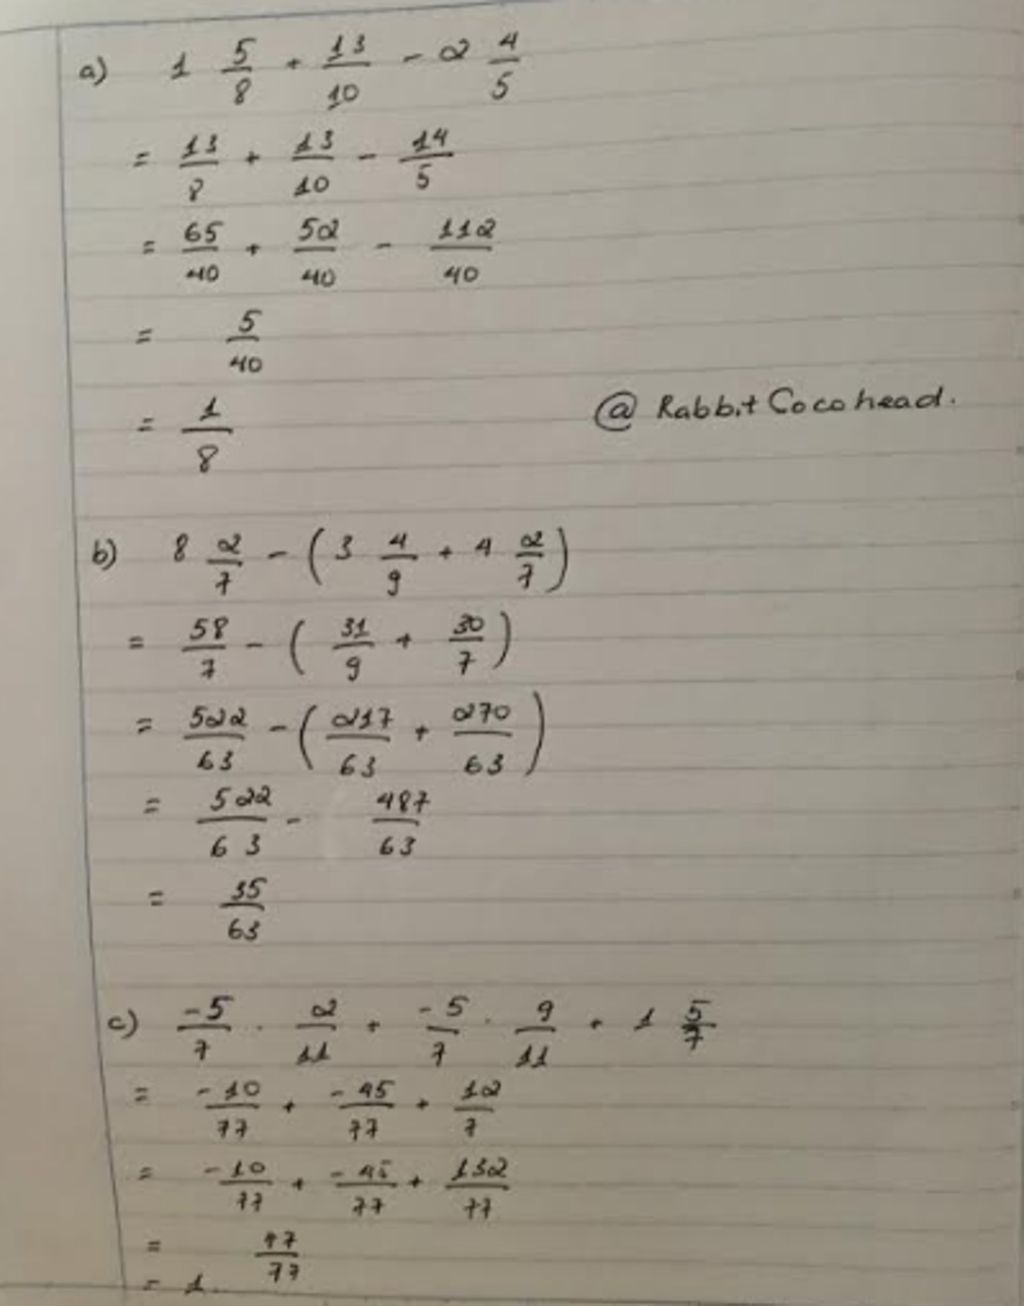 a) 1 5/8 + 13/10 - 2 4/5
= 13/8 + 13/10 - 14/5
= 65/40 + 52/40 - 112/40
= 5/40
@ Rabbit Cocohead.
= 1/8
b) 8 2/7 - (3 4/9 + 4 2/7)
= 58/7 - (31/9 + 30/7)
= 522/63 - (217/63 + 270/63)
= 522/63 - 487/63
= 35/63
c) -5/7 . 2/11 + -5/7 . 9/11 + 1 5/7
= -10/77 + -45/77 + 12/7
= -10/77 + -45/77 + 132/77
= 77/77
= 1.